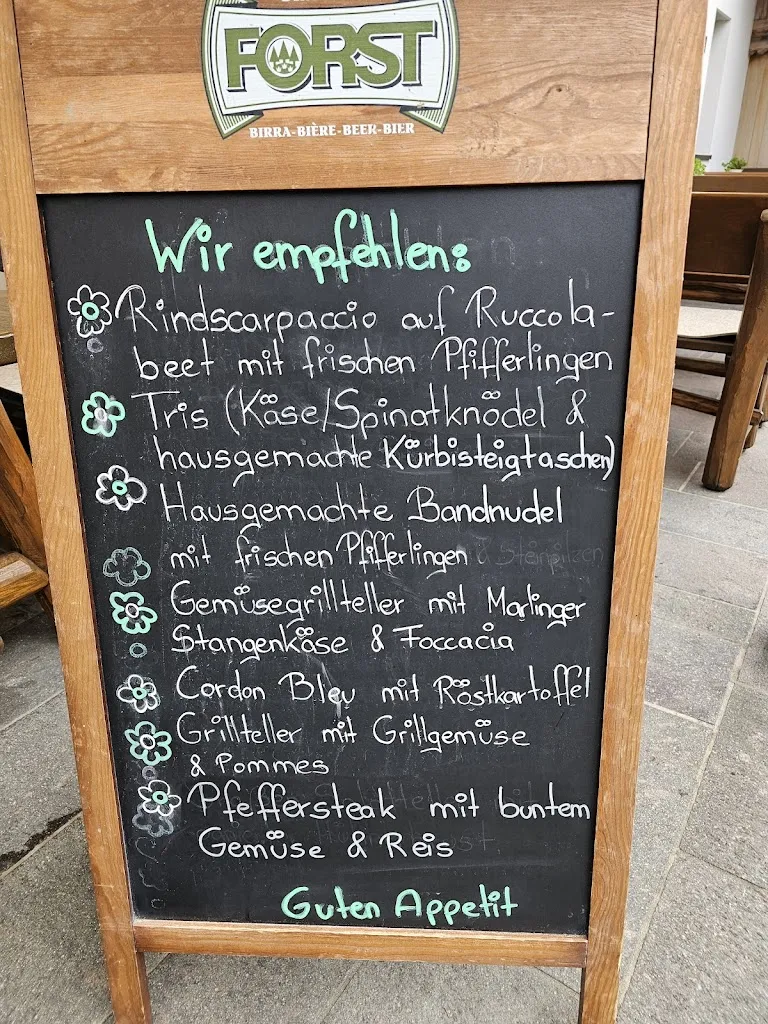 FORST
BIRRA-BIÈRE-BEER-BIER
Wir empfehlen:
Rindscarpaccio auf Ruccola-
beet mit frischen Pfifferlingen
Tris (Käse/Spinatknödel &
hausgemachte Kürbisteigtaschen)
Hausgemachte Bandnudel
mit frischen Pfifferlingen & Steinpilzen
Gemüsegrillteller mit Marlinger
Stangenkäse & Foccacia
Cordon Bleu mit Röstkartoffel
Grillteller mit Grillgemüse
& Pommes
Pfeffersteak mit buntem
Gemüse & Reis
Guten Appetit